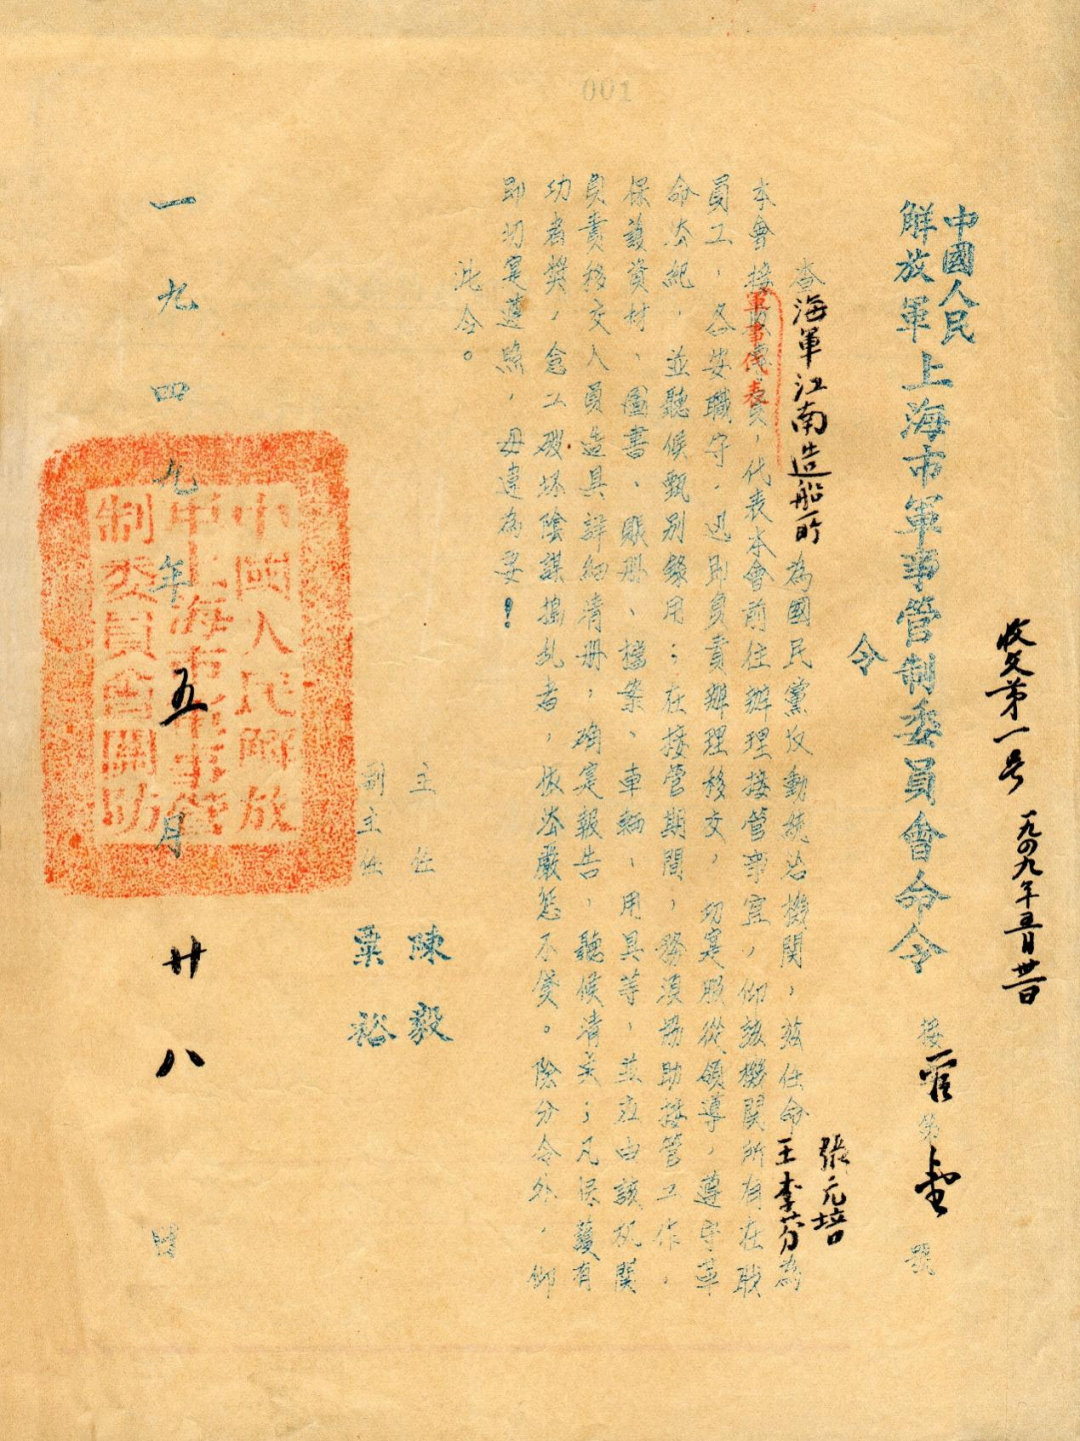 001
收文第一号 一九四九年五月廿八日
中國人民解放軍上海市軍事管制委員會命令 接管第壹號
令
查海軍江南造船所為國民黨反動統治機關，茲任命張元培王李芬為
本會接收專員，代表本會前往辦理接管事宜，仰該機關所有在職
軍事代表
員工，各安職守，迅即負責辦理移交，切實服從領導，遵守革
命法紀，並聽候甄別錄用；在接管期間，務須協助接管工作，
保護資材、圖書、賬册、檔案、車輛、用具等，並應由該机關
負責移交人員造具詳細清册，確寔報告，聽候清美；凡保護有
功者獎，怠工破坏陰謀搗乱者，依法嚴惩不貸。除分令外，仰
即切寔遵照，毋違為要！
此令。
主任 陳毅
副主任 粟裕
一九四九年五月廿八日
中國人民解放
軍上海市軍事管
制委員會關防